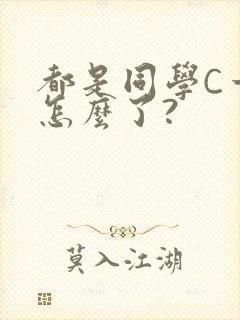 都是同學C一
怎麼了?
莫入江湖